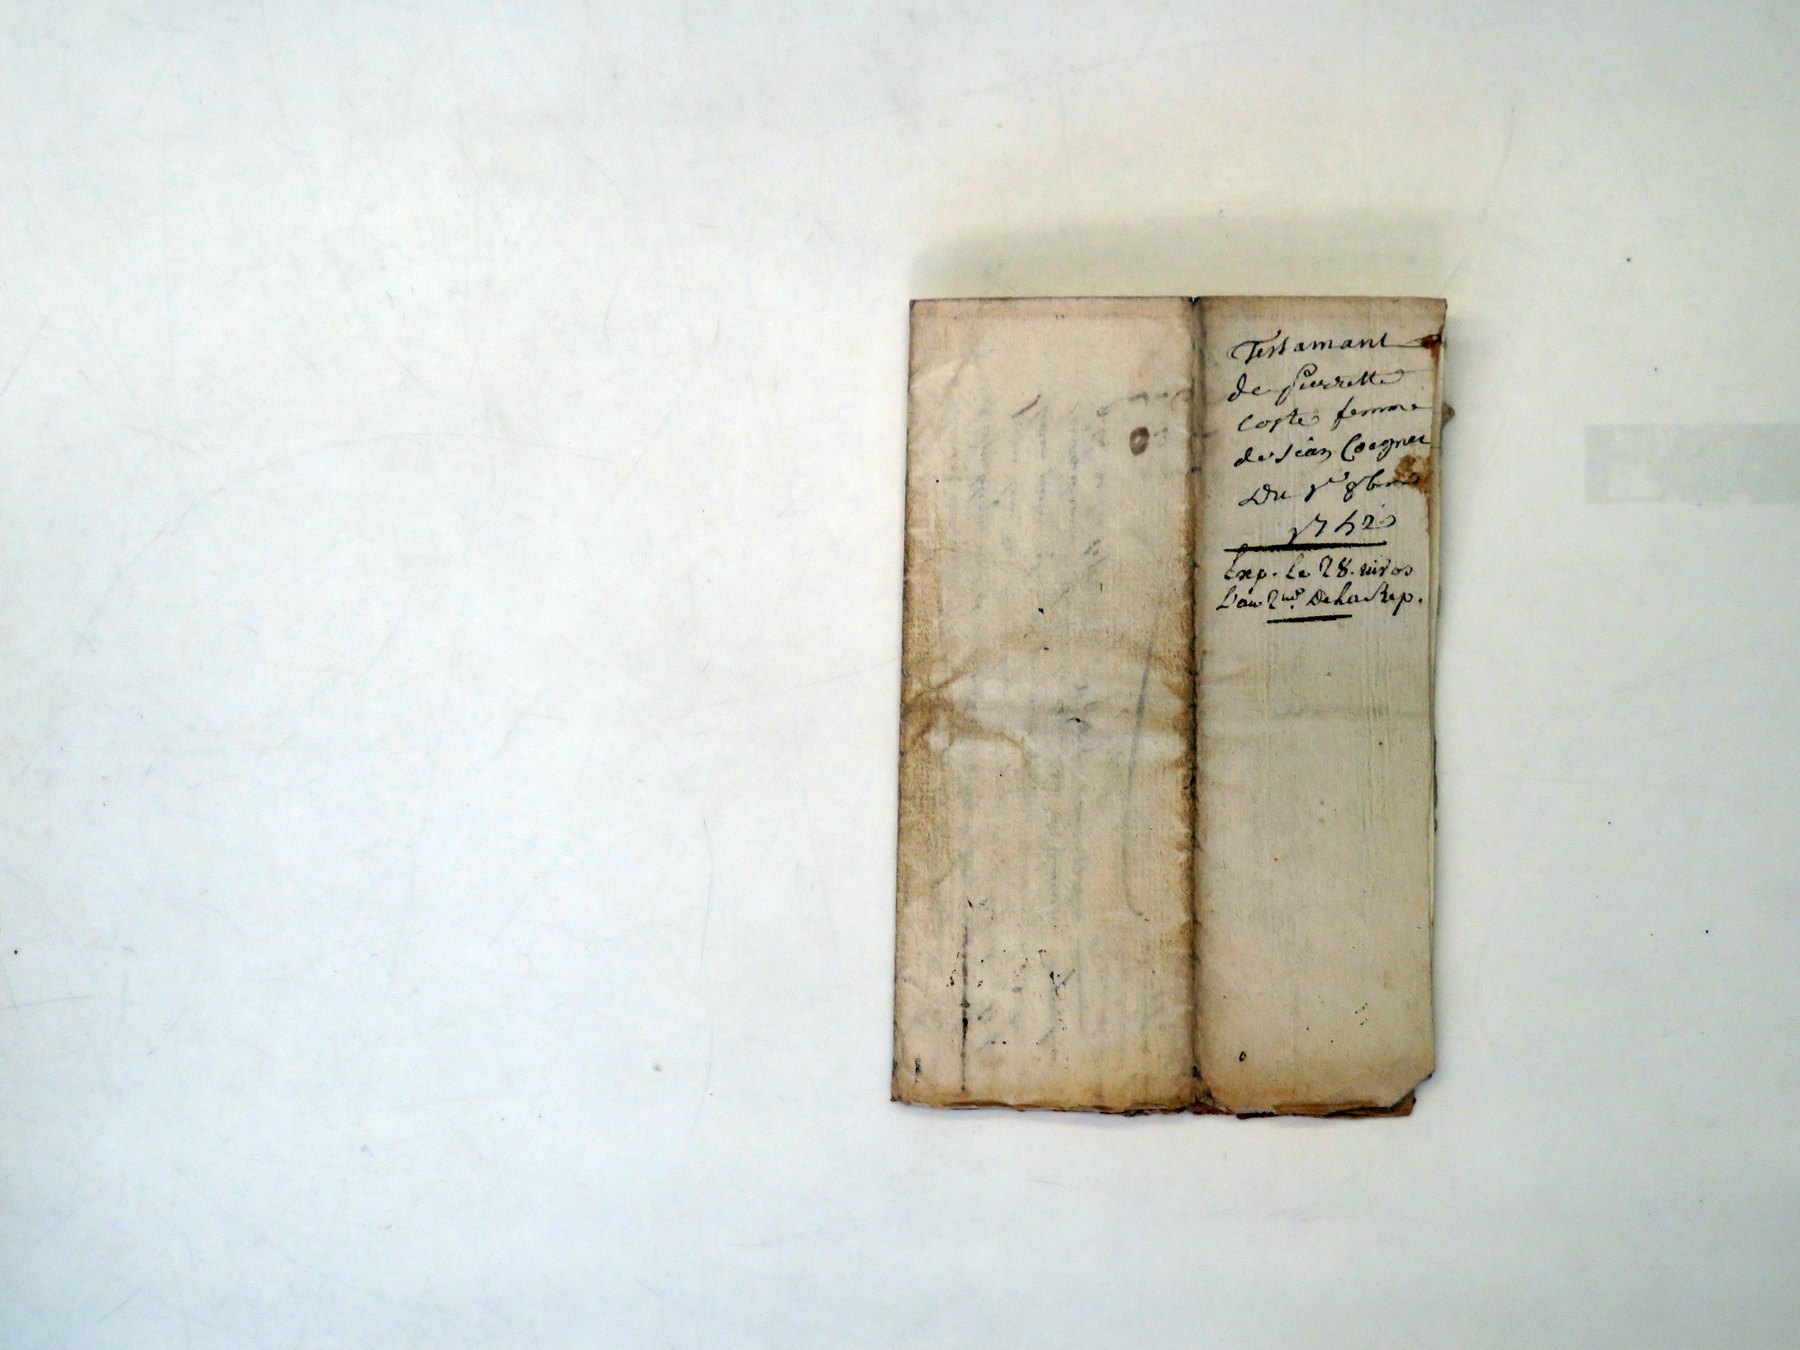 Testamant
de pierrette
Coste femme
de Jean Coegnet
Du 1er 8bre
1742
Exp. le 28. nivos
L'an 2me De la Rep.